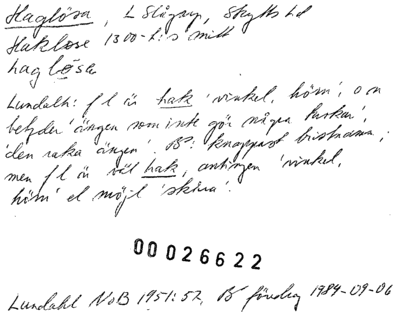 Haglösa, L Slågarp, Skytts hd
Haklose 1300-t:s mitt
haglösa
Lundahl: f l är hak 'vinkel, hörn', o n
betyder 'ängen som inte gör några krokar',
'den raka ängen'. B: knappast bistnamn;
men f l är väl hak, antingen 'vinkel,
hörn' el möjl 'skåra'.
00026622
Lundahl NoB 1951:57, B föredrag 1984-09-06